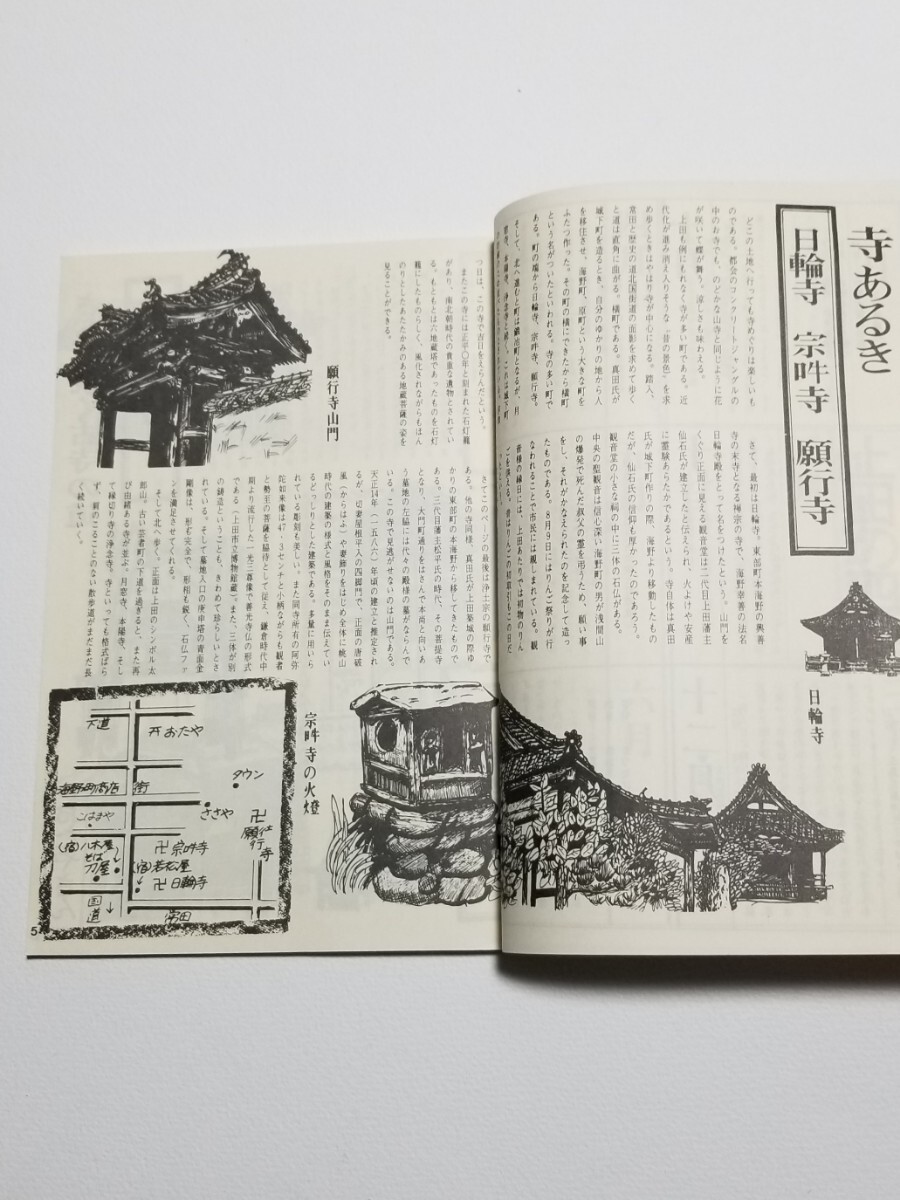 寺あるき
日輪寺 宗吽寺 願行寺
どこの土地へ行っても寺めぐりは楽しいも
のである。都会のコンクリートジャングルの
中のお寺でも、のどかな山寺と同じように花
が咲いて蝶が舞う。涼しさも味わえる。
上田も例にもれなく寺が多い町である。近
代化が進み消え入りそうな「昔の景色」を求
め歩くときはやはり寺が中心になる。踏入、
常田と歴史の道北国街道の面影を求めて歩く
と道は直角に曲がる。横町である。真田氏が
城下町を造るとき、自分のゆかりの地から人
を移住させ、海野町、原町という大きな町を
ふたつ作った。その町の横にできたから横町
という名がついたといわれる。寺の多い町で
ある。町の端から日輪寺、宗吽寺、願行寺。
そして、北へ進むと町は鍛冶町となるが、月
さて、最初は日輪寺。東部町本海野の興善
寺の末寺となる禅宗の寺で、海野幸善の法名
日輪寺殿をとって名をつけたという。山門を
くぐり正面に見える観音堂は二代目上田藩主
仙石氏が建立したと伝えられ、火よけや安産
に霊験あらたかであるという。寺自体は真田
氏が城下町作りの際、海野より移動したもの
だが、仙石氏の信仰も厚かったのであろう。
観音堂の小さな祠の中に三体の石仏がある。
中央の聖観音は信心深い海野町の男が浅間山
の爆発で死んだ叔父の霊を弔うため、願い事
をし、それがかなえられたのを記念して造っ
たものである。8月9日にはりんご祭りが行
なわれることで市民には親しまれている。観
音様の縁日には、上田あたりでは初物のりん
日輪寺
つ目は、この寺で吉日をえらんだという。
またこの寺には正平〇年と刻まれた石灯籠
があり、南北朝時代の貴重な遺物とされてい
る。もともとは六地蔵塔であったものを石灯
籠にしたものらしく、風化されながらもほん
のりとしたあたたかみのある地蔵菩薩の姿を
見ることができる。
願行寺山門
さてこのページの最後は浄土宗の願行寺で
ある。他の寺同様、真田氏が上田築城の際ゆ
かりの東部町の本海野から移してきたもので
ある。三代目藩主松平氏の時代、その菩提寺
となり、大門町通りをはさんで本尚と向いあ
う墓地の左脇には代々の殿様の墓がならんで
いる。この寺で見逃がせないのは山門である。
天正14年（一五八六）年頃の建立と推定され
るが、切妻屋根平入の四脚門で、正面の唐破
風（からはふ）や妻飾りをはじめ全体に桃山
時代の建築の様式と風格をそのまま伝えてい
るどっしりとした建築である。多量に用いら
れている彫刻も美しい。また同寺所有の阿弥
陀如来像は47・3センチと小柄ながらも観音
と勢至の菩薩を脇待として従え、鎌倉時代中
期より流行した一光三尊像で善光寺仏の形式
である（上田市立博物館蔵）。また、三体が別
の鋳造ということも、きわめて珍らしいとさ
れている。そして墓地入口の庚申塔の青面金
剛像は、形も完全で、形相も鋭く、石仏ファ
ンを満足させてくれる。
そして北へ歩く。正面は上田のシンボル太
郎山。古い芸者町の下道を過ぎると、また再
び由緒ある寺が並ぶ。月窓寺、本陽寺、そし
て縁切り寺の浄念寺。寺といっても格式ばら
ず、肩のこることのない散歩道がまだまだ長
く続いていく。
宗吽寺の火燈
下道
おたや
タウン
海野町商店街
こはまや
ささや
願行寺
(宿)八木屋
そば
刀屋
宗吽寺
(宿)若松屋
日輪寺
国道
常田
5